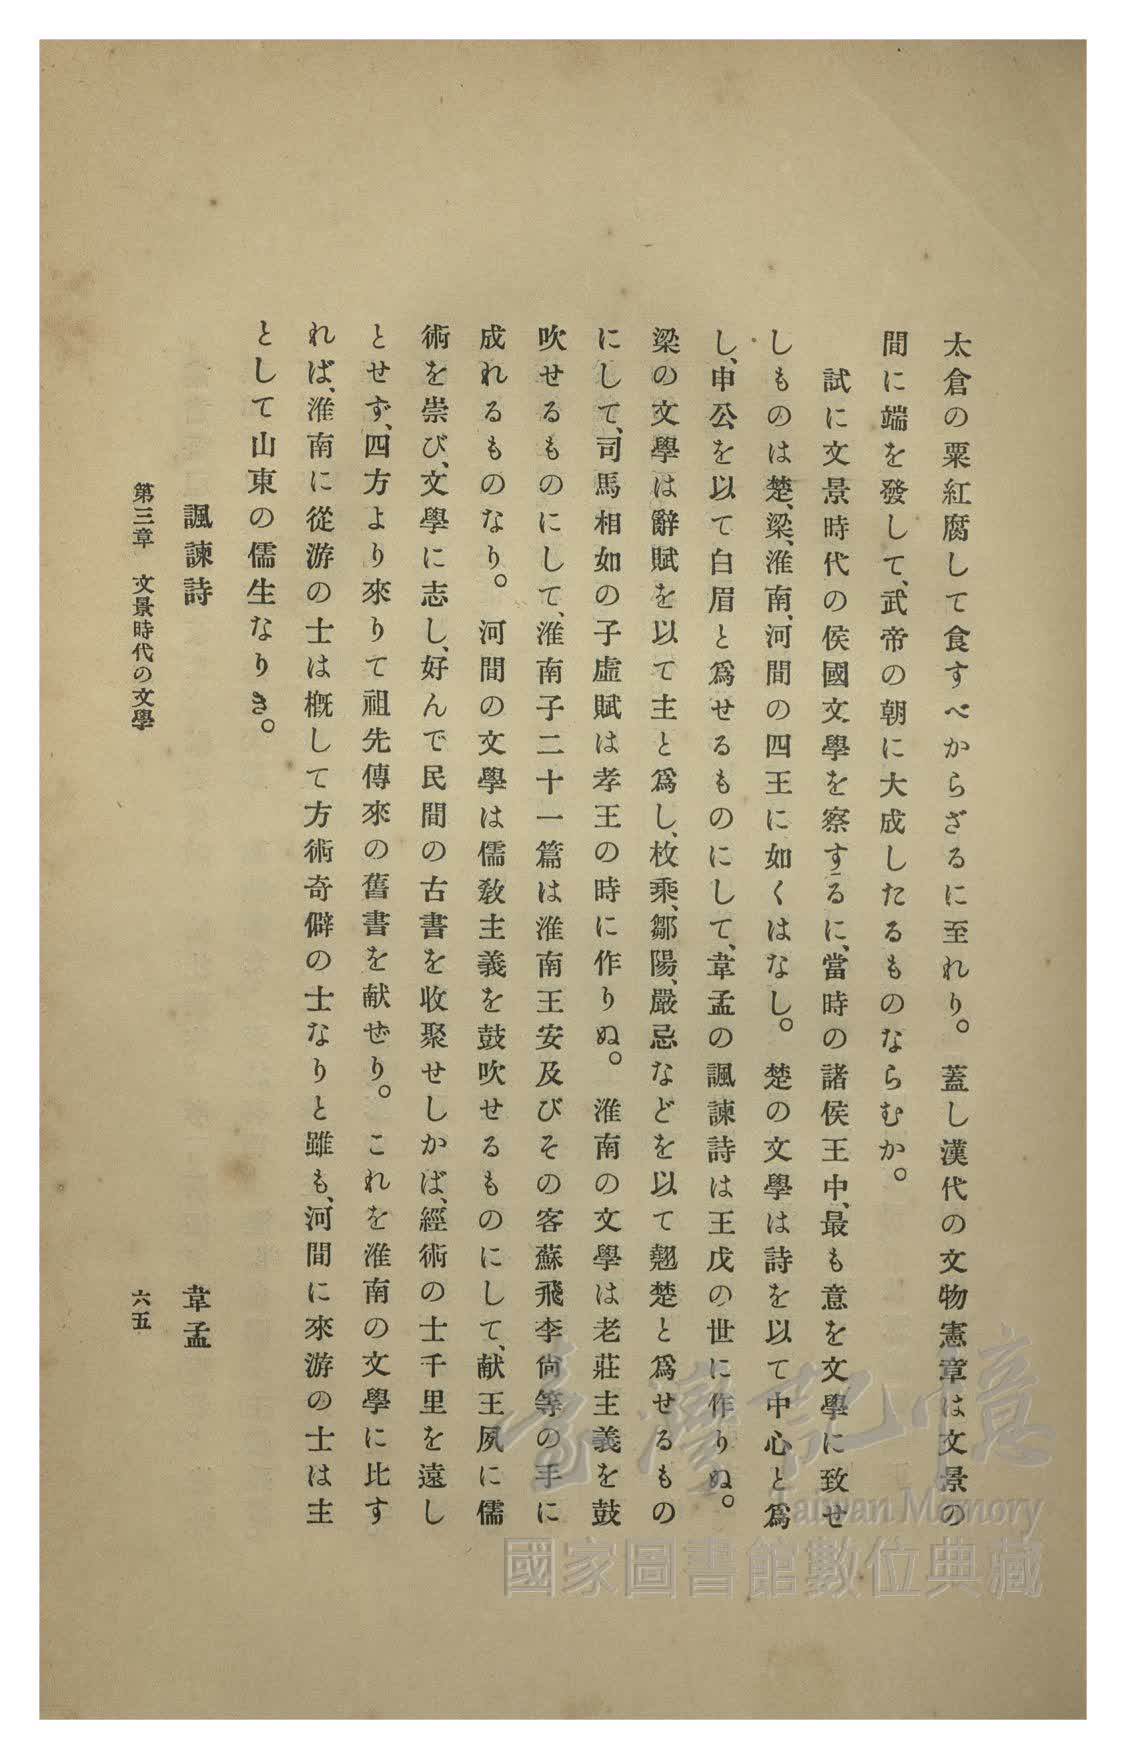 太倉の粟紅腐して食すべからざるに至れり。蓋し漢代の文物憲章は文景の
間に端を發して、武帝の朝に大成したるものならむか。
試に文景時代の侯國文學を察するに、當時の諸侯王中、最も意を文學に致せ
しものは楚、梁、淮南、河間の四王に如くはなし。楚の文學は詩を以て中心と爲
し、申公を以て白眉と爲せるものにして、韋孟の諷諫詩は王戊の世に作りぬ。
梁の文學は辭賦を以て主と爲し、枚乘、鄒陽、嚴忌などを以て翹楚と爲せるもの
にして、司馬相如の子虛賦は孝王の時に作りぬ。淮南の文學は老莊主義を鼓
吹せるものにして、淮南子二十一篇は淮南王安及びその客蘇飛李尙等の手に
成れるものなり。河間の文學は儒敎主義を鼓吹せるものにして、献王夙に儒
術を崇び、文學に志し、好んで民間の古書を收聚せしかば、經術の士千里を遠し
とせず、四方より來りて祖先傳來の舊書を献ぜり。これを淮南の文學に比す
れば、淮南に從游の士は槪して方術奇僻の士なりと雖も、河間に來游の士は主
として山東の儒生なりき。
諷諫詩 韋孟
第三章 文景時代の文學 六五
臺灣記憶
Taiwan Memory
國家圖書館數位典藏